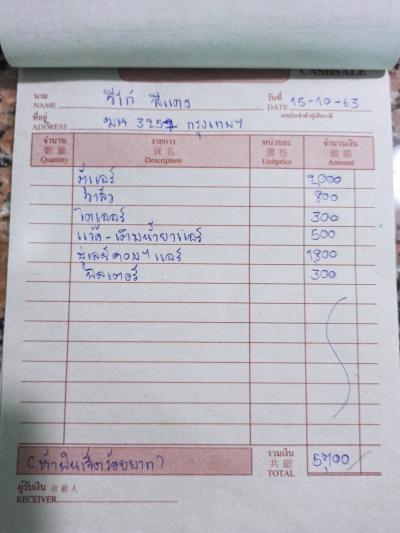 CASHSALE
นาม
NAME วีโก้ สีแดง
วันที่
DATE 15-10-63
ที่อยู่
ADDRESS ฆห 3257 กรุงเทพฯ
เลขประจำตัวผู้เสียภาษี
จำนวน รายการ หน่วยละ จำนวนเงิน
數量 貨名 價格 銀額
Quantity Description Unitprice Amount
ตู้แอร์ 2,000
วาล์ว 800
ไดเออร์ 300
แว๊ค-เติมน้ำยาแอร์ 500
มู่เลย์คอมฯแอร์ 1,800
ฟิลเตอร์ 300
(ห้าพันเจ็ดร้อยบาท)
รวมเงิน
共銀
TOTAL 5700
ผู้รับเงิน 收銀人
RECEIVER